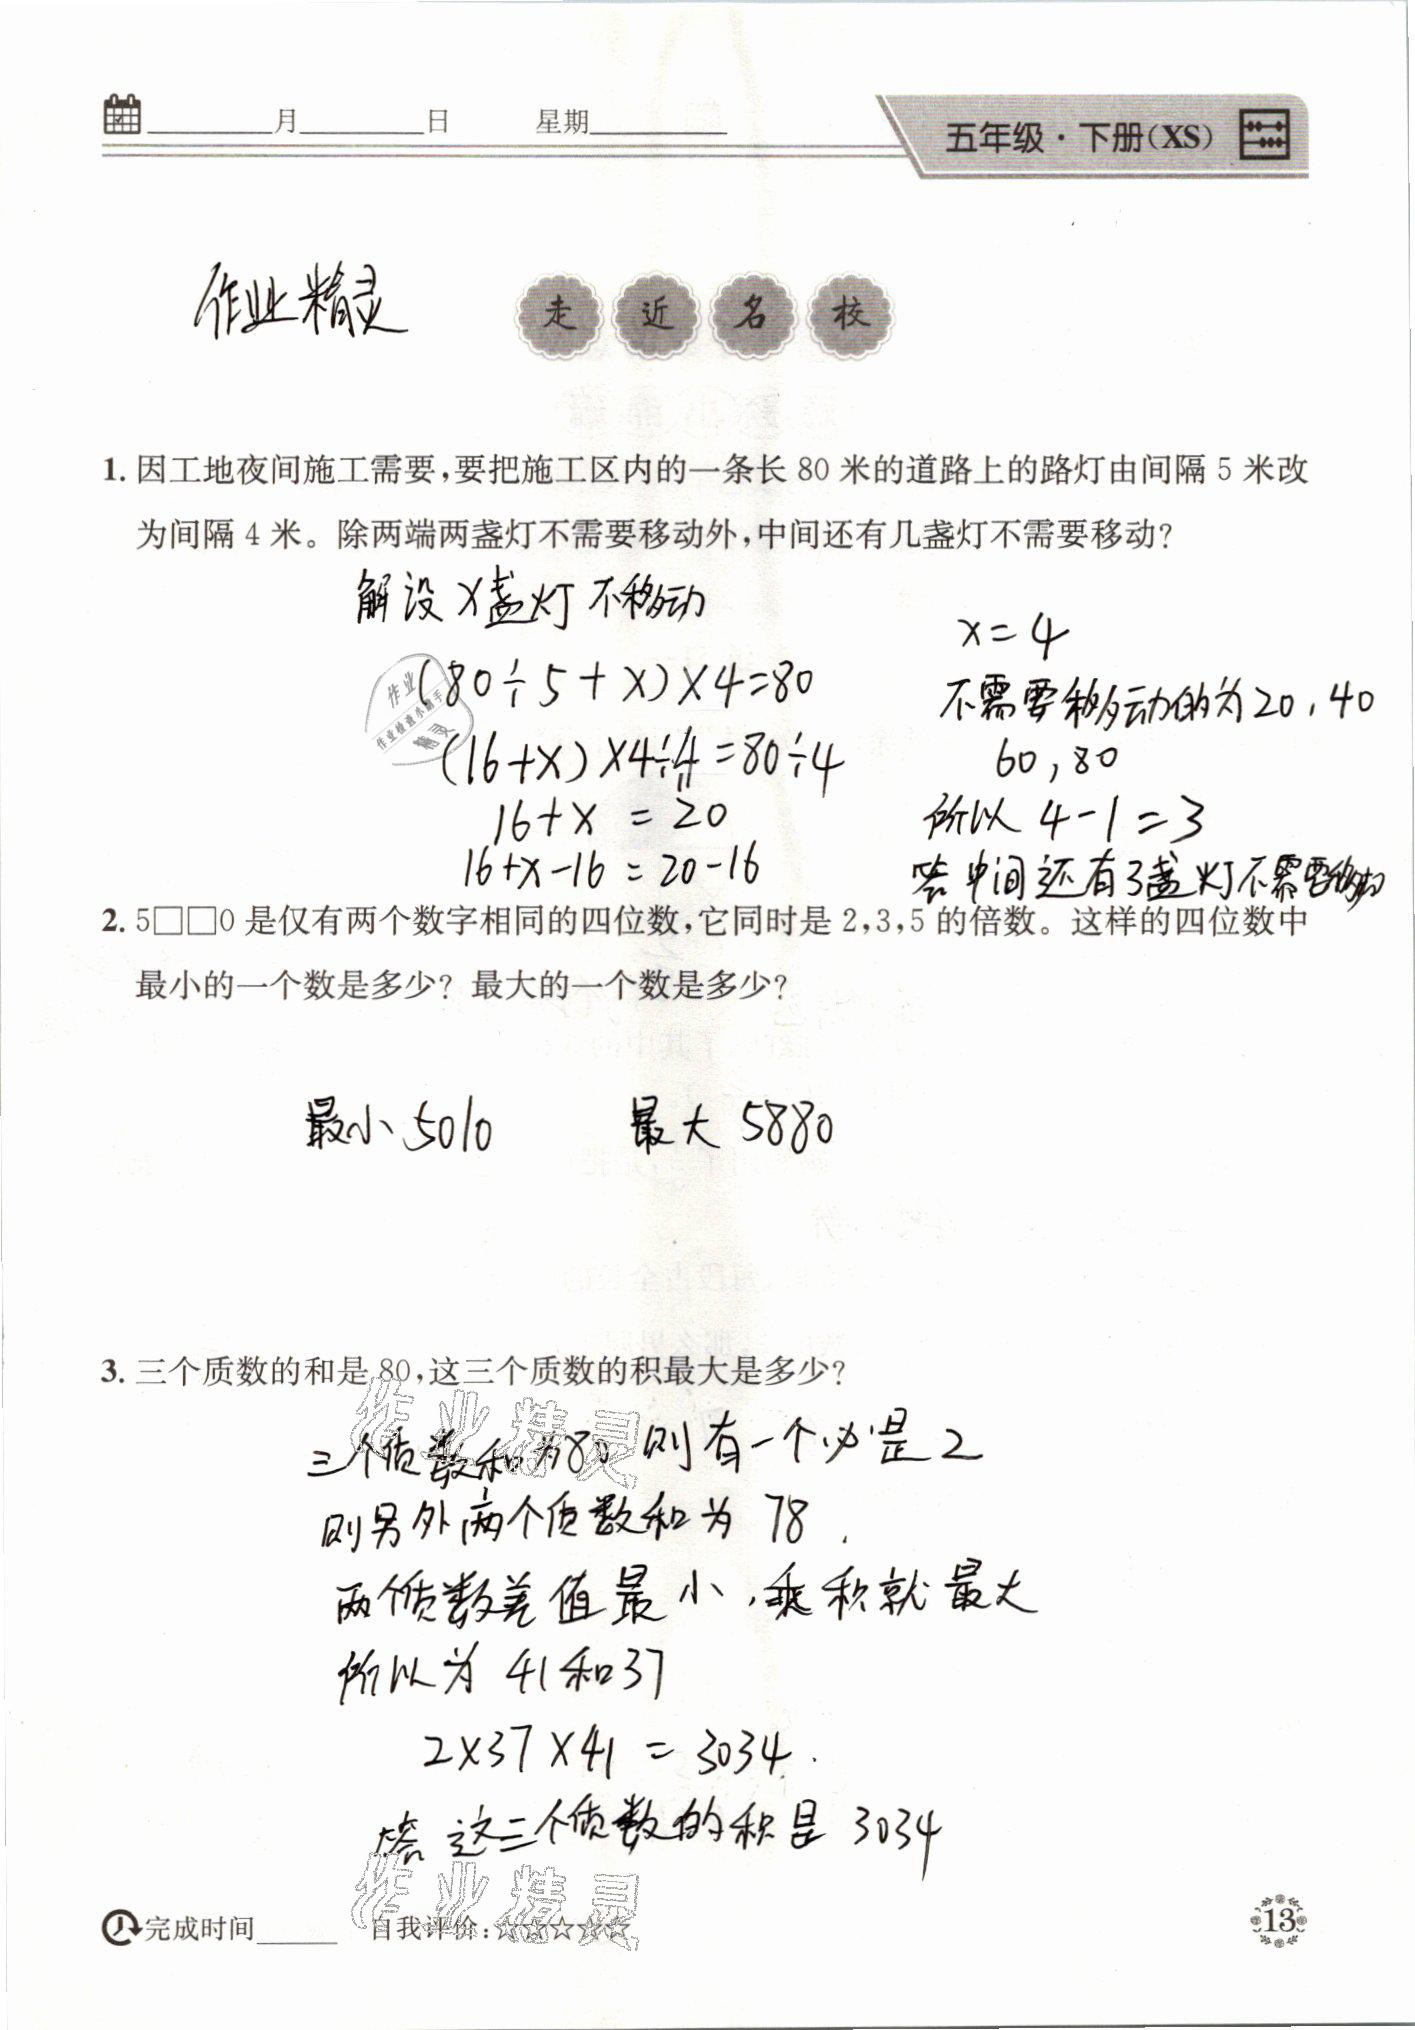 月 日 星期
五年级·下册(XS)
作业精灵
走近名校
1. 因工地夜间施工需要,要把施工区内的一条长 80 米的道路上的路灯由间隔 5 米改
为间隔 4 米。除两端两盏灯不需要移动外,中间还有几盏灯不需要移动?
解设 x盏灯不移动
(80÷5+x)×4=80
(16+x)×4÷4=80÷4
16+x=20
16+x-16=20-16
x=4
不需要移动的为20,40
60,80
所以 4-1=3
答中间还有3盏灯不需要移动
作业
作业检查小助手
精灵
2. 5□□0 是仅有两个数字相同的四位数,它同时是 2,3,5 的倍数。这样的四位数中
最小的一个数是多少? 最大的一个数是多少?
最小5010 最大 5880
3. 三个质数的和是 80,这三个质数的积最大是多少?
作业精灵
三个质数和为80则有一个必是2
则另外两个质数和为 78.
两个质数差值最小,乘积就最大
所以为 41和37
2×37×41=3034.
答这三个质数的积是3034
作业精灵
完成时间 自我评价:☆☆☆☆☆
13